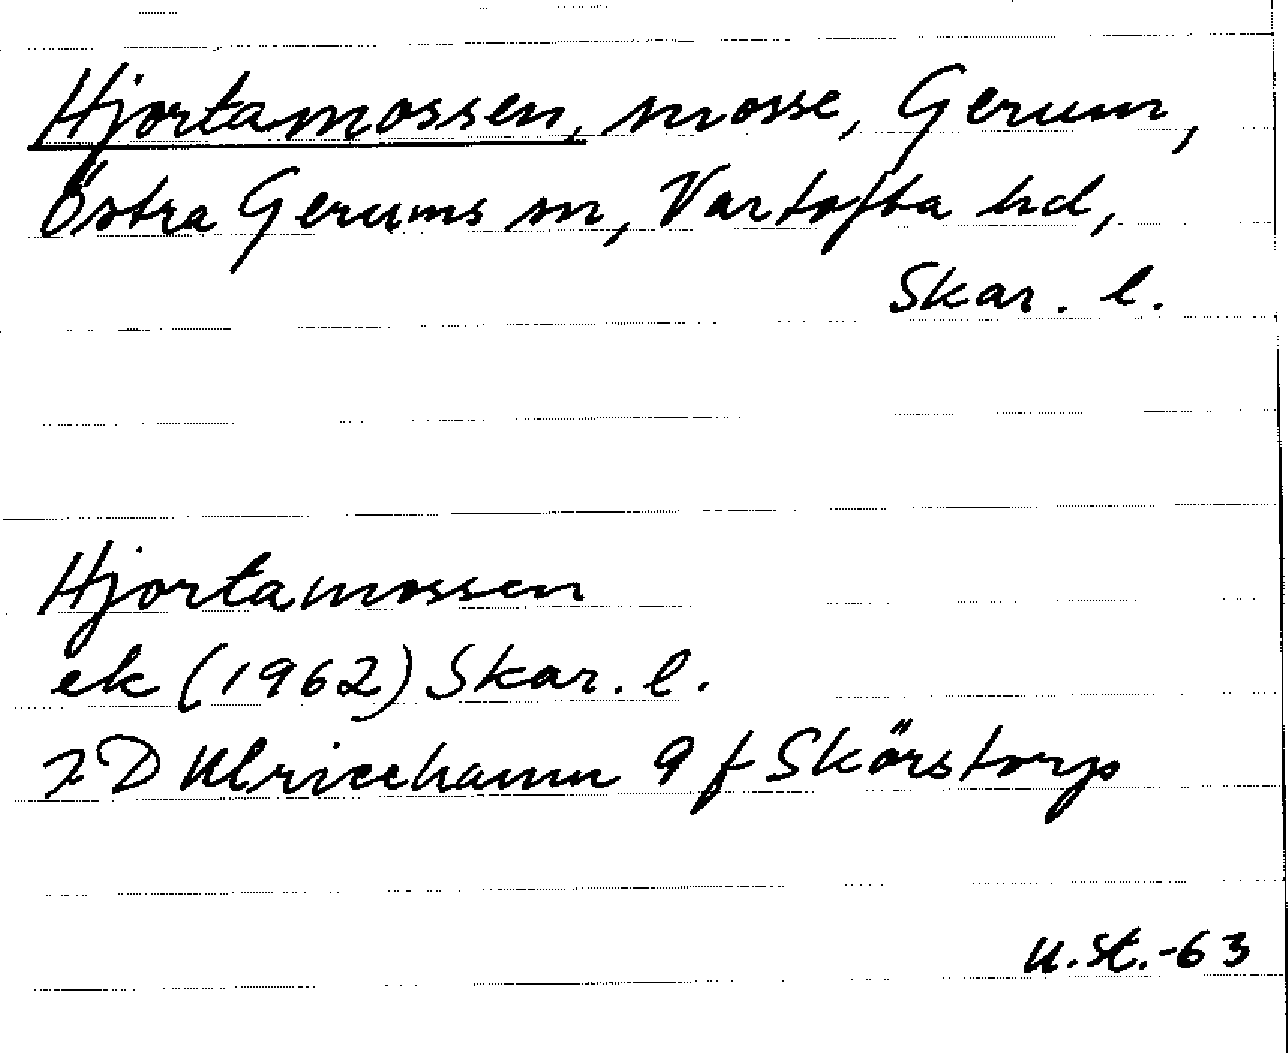 Hjortamossen, mosse, Gerum,
Östra Gerums sn, Vartofta hd,
Skar. l.
Hjortamossen
ek (1962) Skar. l.
7 D Ulricehamn 9 f Skörstorp
U.St.-63